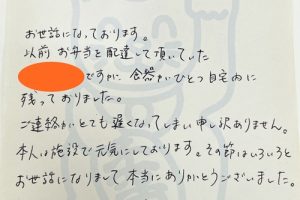 お世話になっております。
以前 お弁当を配達して頂いていた
ですが 食器がひとつ自宅内に
残っておりました。
ご連絡がとても遅くなってしまい申し訳ありません。
本人は施設で元気にしております。その節はいろいろと
お世話になりまして 本当にありがとうございました。